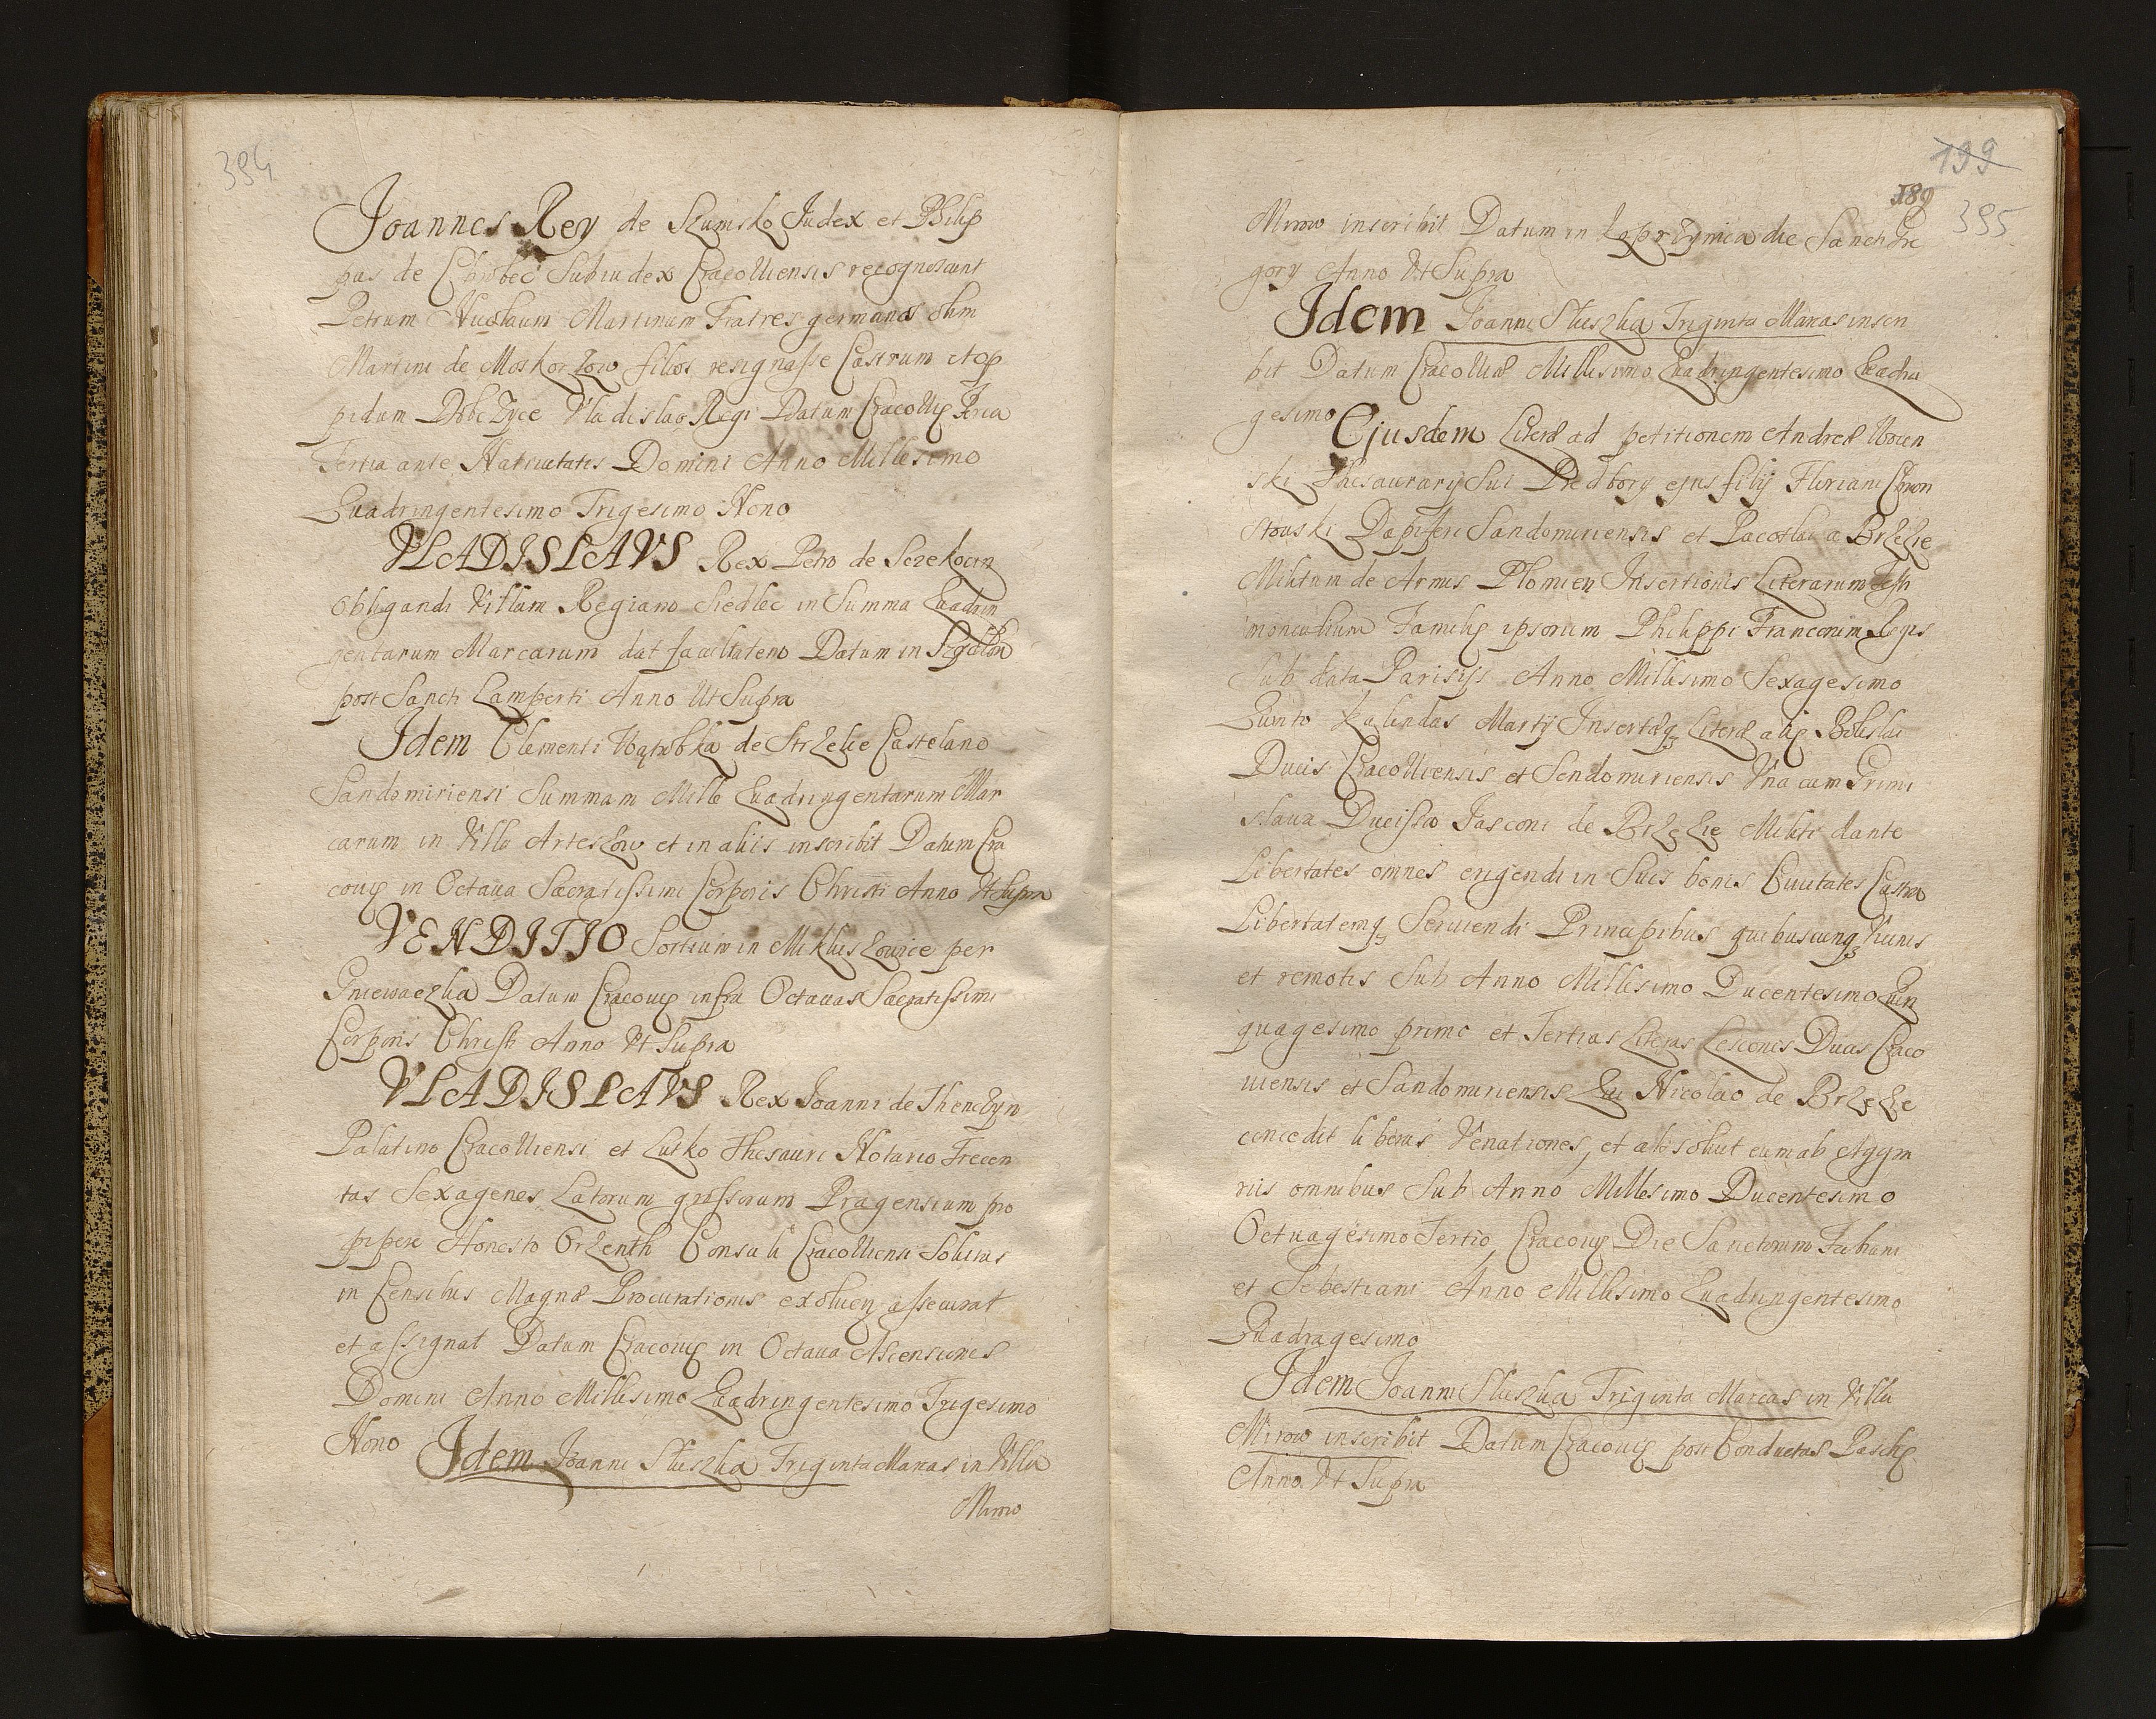 394
Joannes Rey de Szumsko Judex et Philip
pus de Chrobec Subiudex Cracouiensis recognoscunt
Petrum Nicolaum Martinum Fratres germanos olim
Martini de Moskorzow filios resignasse Castrum et op
pidum Dobczyce Vladislao Regi Datum Cracouię Feria
Tertia ante Natiuitatis Domini Anno Millesimo
Quadringentesimo Trigesimo Nono
VLADISLAVS Rex Petro de Sczekocin
obligandi Villam Regiam Siedlec in Summa Quadrin
gentarum Marcarum dat facultatem Datum in
post Sancti Lamperti Anno Ut Supra
Idem Clementi Wątrobka de Strzelce Castelano
Sandomiriensi Summam Mille Quadringentarum Mar
carum in Villa Arteszow et in aliis inscribit Datum Cra
couię in Octaua Sacratissimi Corporis Christi Anno Ut Supra
VENDITIO Sortium in Mikluszowice per
Gniewaczka Datum Cracouię infra Octauas Sacratissimi
Corporis Christi Anno Ut Supra
VLADISLAVS Rex Joanni de Thenczyn
Palatino Cracouiensi et Lutko Thesauri Notario Trecen
tas Sexagenes Latorum grossorum Pragensium pro
pipere Honesto Orzenth Consuli Cracouiensi Soluens
in Censibus Magnæ Procurationis exoluen assecurat
et assignat Datum Cracouię in Octaua Ascensionis
Domini Anno Millesimo Quadringentesimo Trigesimo
Nono Idem Joanni Sluszka Triginta Marcas in Villa
Mirow
199
189
395
Mirow inscribit Datum in Koprzymica die Sancti Gre
gory Anno Ut Supra
Idem Joanni Sluszka Triginta Marcas inscri
bit Datum Cracouiæ Millesimo Quadringentesimo Quadra
gesimo Ejusdem Literæ ad petitionem Andreæ
ski Thesaurarij Sui Predbory ejus filij Floriani
Dapiferi Sandomiriensis et Pacoslai a Brzezie
Militum de Armis Plomien Insertionis Literarum Testi
monialium Familię ipsorum Philippi Francorum Regis
Sub data Parisijs Anno Millesimo Sexagesimo
Quinto Kalendas Martij Insertæq Literæ alię Boleslai
Ducis Cracouiensis et Sendomiriensis Vna cum Grimi
slaua Ducissa Jasconi de Brzezie Militi dante
Libertates omnes erigendi in Suis bonis Ciuitates Castra
Libertatemq Seruiendi Principibus quibuscunq Vicinis
et remotis Sub Anno Millesimo Ducentesimo Quin
quagesimo primo et Tertias Literas Lesconis Ducis Craco
uiensis et Sandomiriensis Qui Nicolao de Brzezie
concedit liberas Venationes, et absoluit eum ab Aggra
riis omnibus Sub Anno Millesimo Ducentesimo
Octuagesimo Tertio, Cracouię Die Sanctorum Fabiani
et Sebestiani Anno Millesimo Quadringentesimo
Quadragesimo
Idem Joanni Sluszka Triginta Marcas in Villa
Mirow inscribit Datum Cracouię post Conductus Paschę
Anno Ut Supra